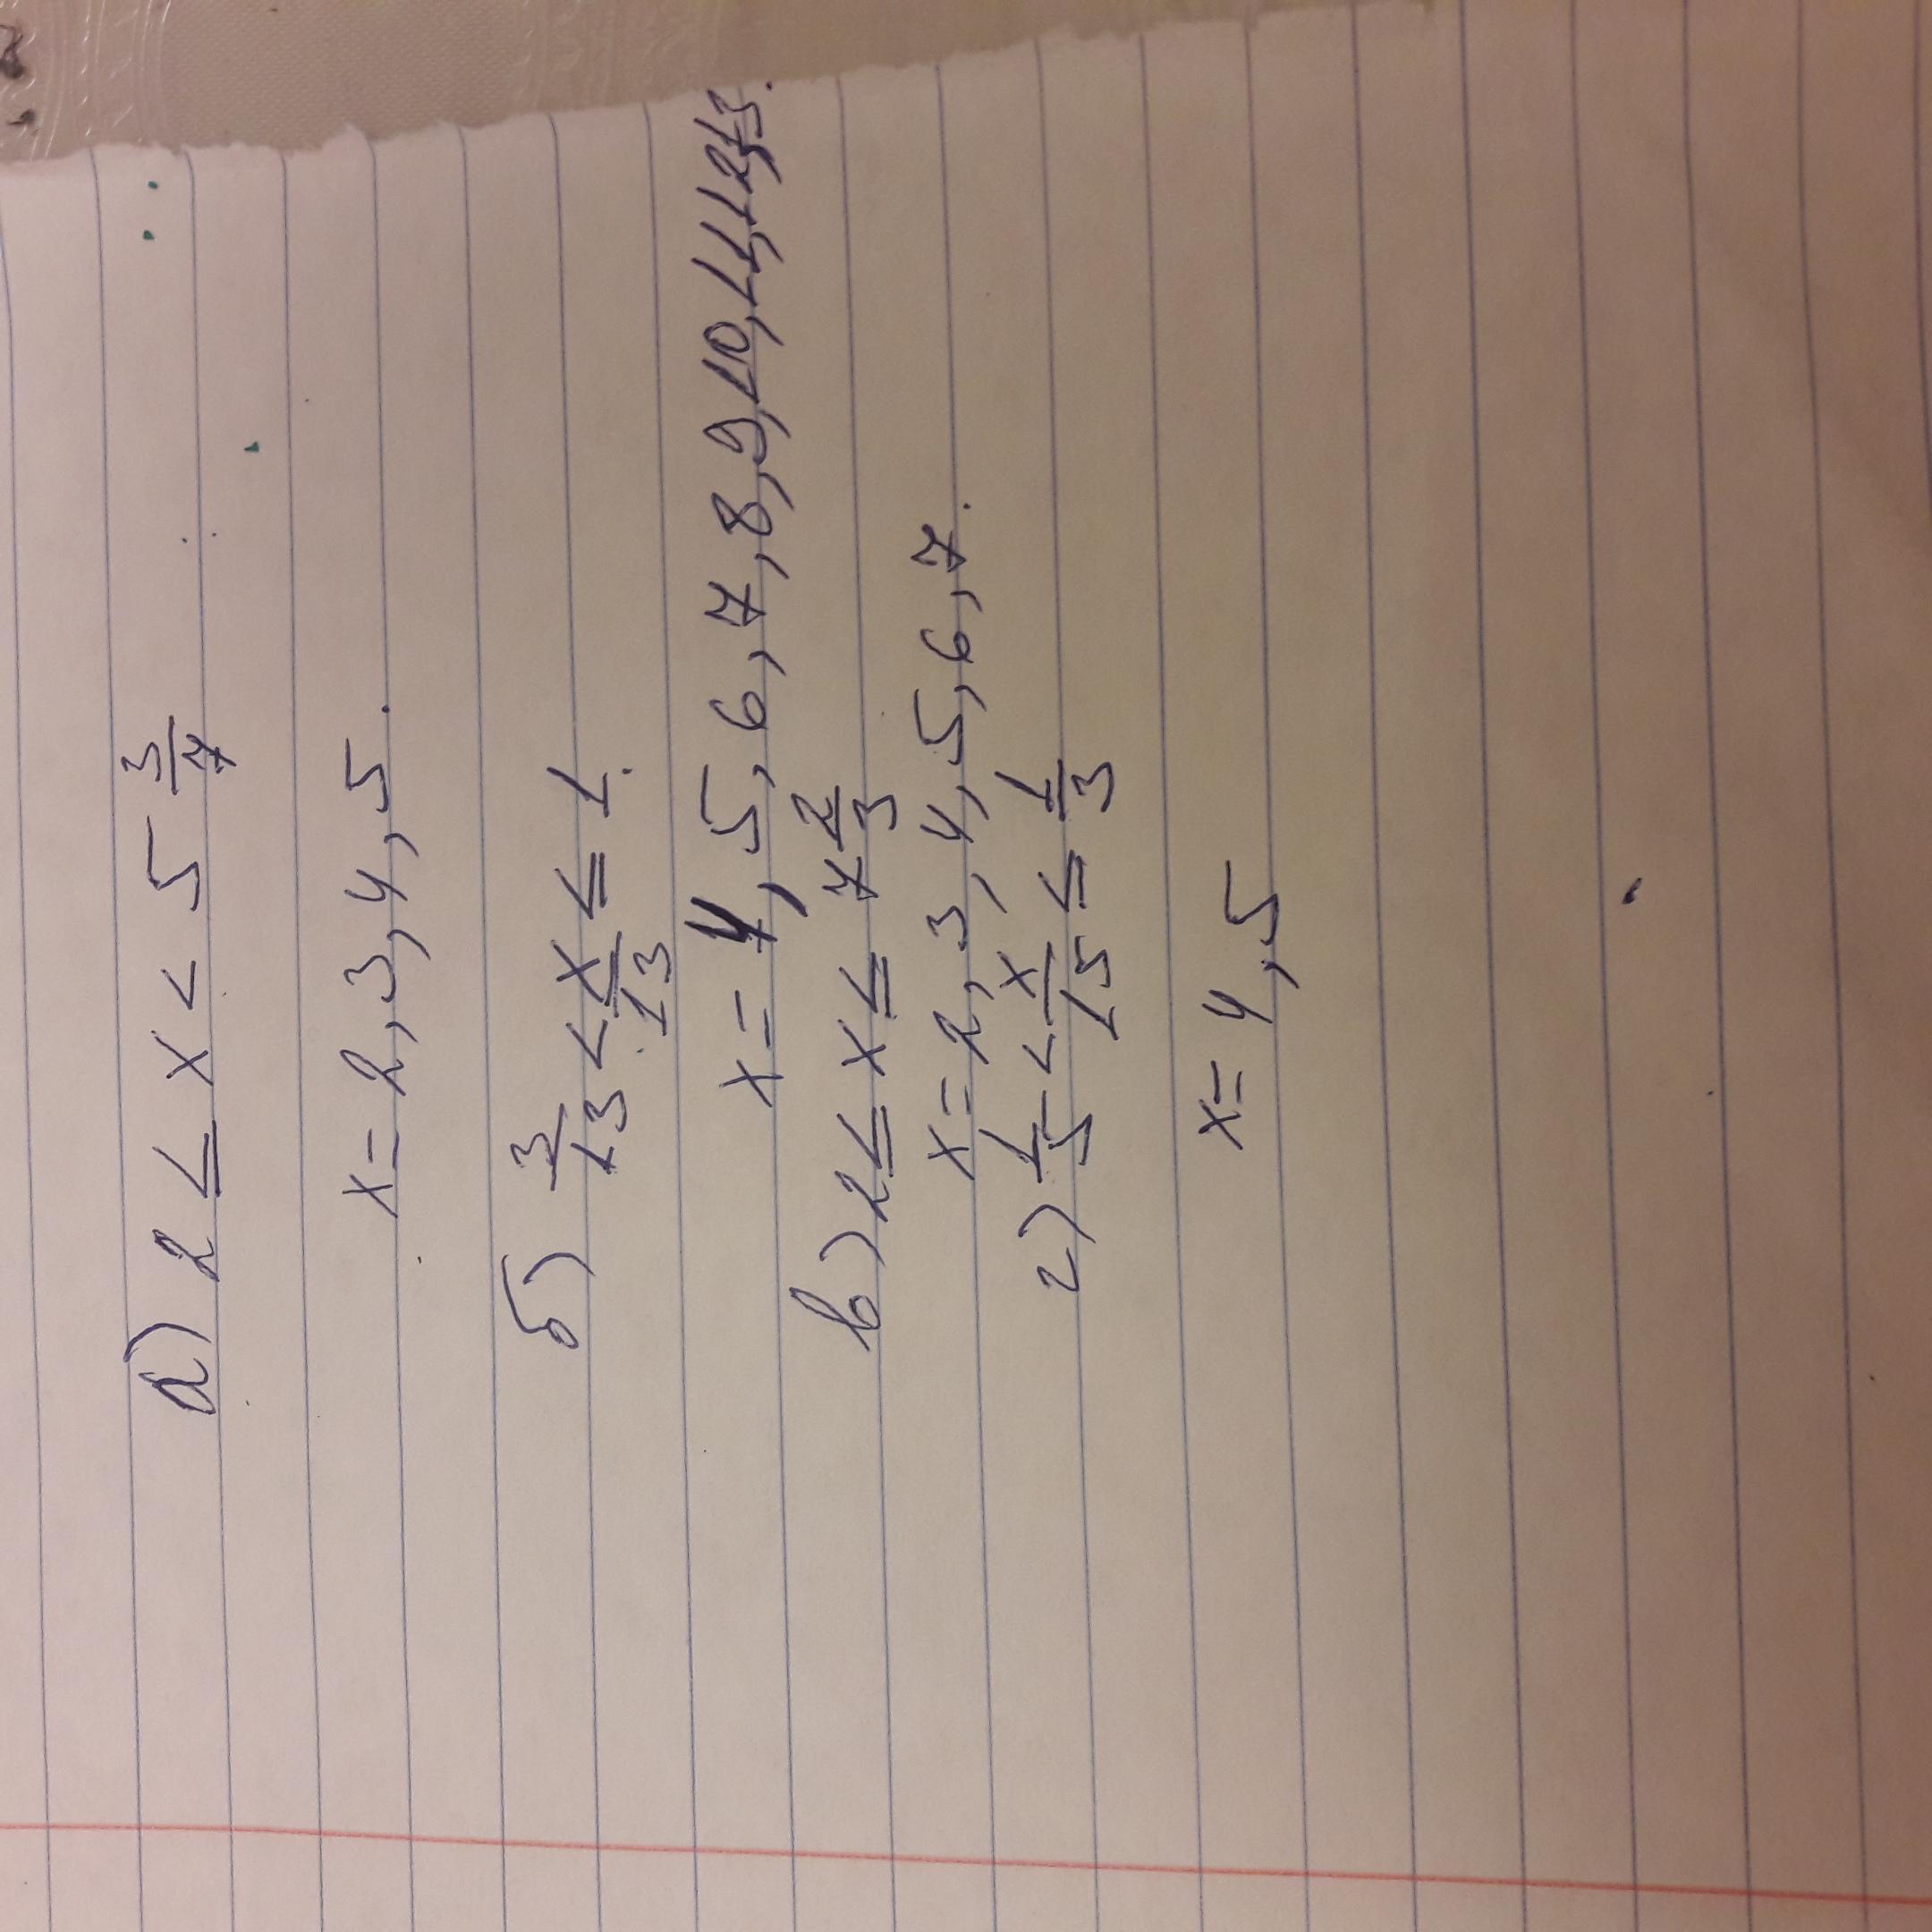 а) 2 ≤ x < 5 3/7
x = 2, 3, 4, 5.
б) 3/13 < x/13 ≤ 1.
x = 4, 5, 6, 7, 8, 9, 10, 11, 12, 13.
в) 2 ≤ x ≤ 7 2/3
x = 2, 3, 4, 5, 6, 7.
г) 1/5 < x/15 ≤ 1/3
x = 4, 5